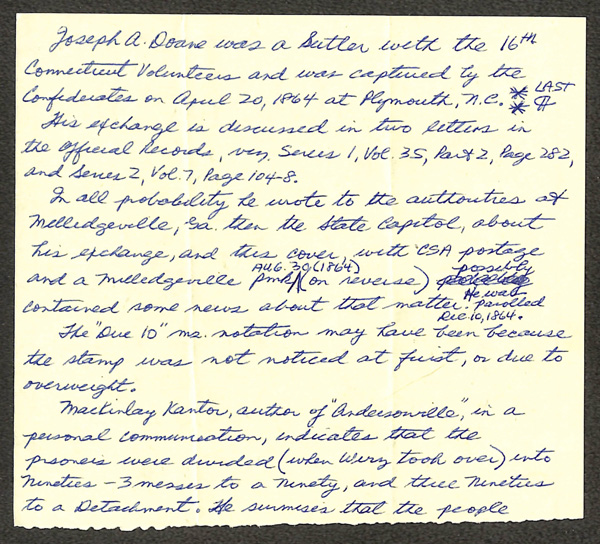 Joseph A. Doane was a Sutler with the 16TH
Connecticut Volunteers and was captured by the
Confederates on April 20, 1864 at Plymouth, N.C. ** LAST ¶
His exchange is discussed in two letters in
the Official Records, viz, Series 1, Vol. 35, Part 2, Page 282,
and Series 2, Vol. 7, Page 1048.
In all probability he wrote to the authorities at
Milledgeville, Ga. then the State Capitol, about
his exchange, and this cover, with CSA postage
and a Milledgeville pmk AUG. 30 (1864) (on reverse) possibly
contained some news about that matter. He was parolled Dec. 10, 1864.
The "Due 10" ms. notation may have been because
the stamp was not noticed at first, or due to
overweight.
Mackinlay Kantor, author of "Andersonville", in a
personal communication, indicates that the
prisoners were divided (when Wirz took over) into
Nineties - 3 messes to a Ninety, and three Nineties
to a Detachment. He surmises that the people